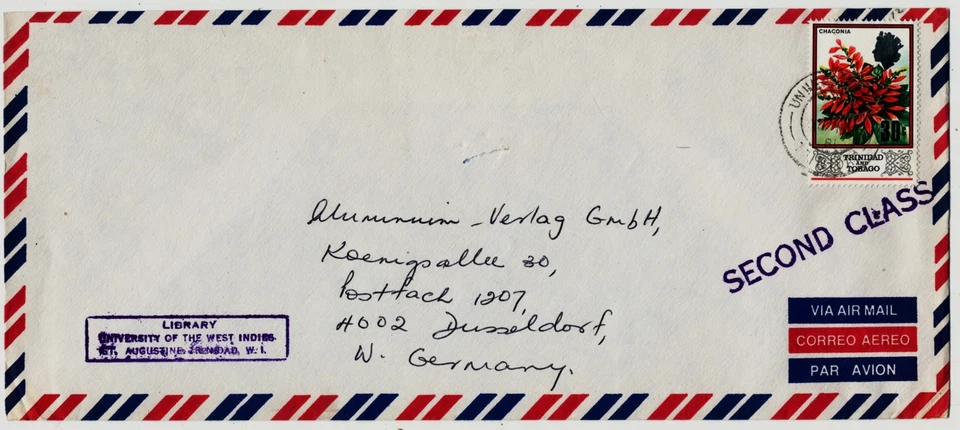 CHACONIA
30c
TRINIDAD
AND
TOBAGO
SECOND CLASS
Aluminium-Verlag GmbH,
Koenigsallee 30,
Postfach 1207,
4002 Dusseldorf,
W. Germany.
LIBRARY
UNIVERSITY OF THE WEST INDIES
ST. AUGUSTINE, TRINIDAD, W. I.
VIA AIR MAIL
CORREO AEREO
PAR AVION